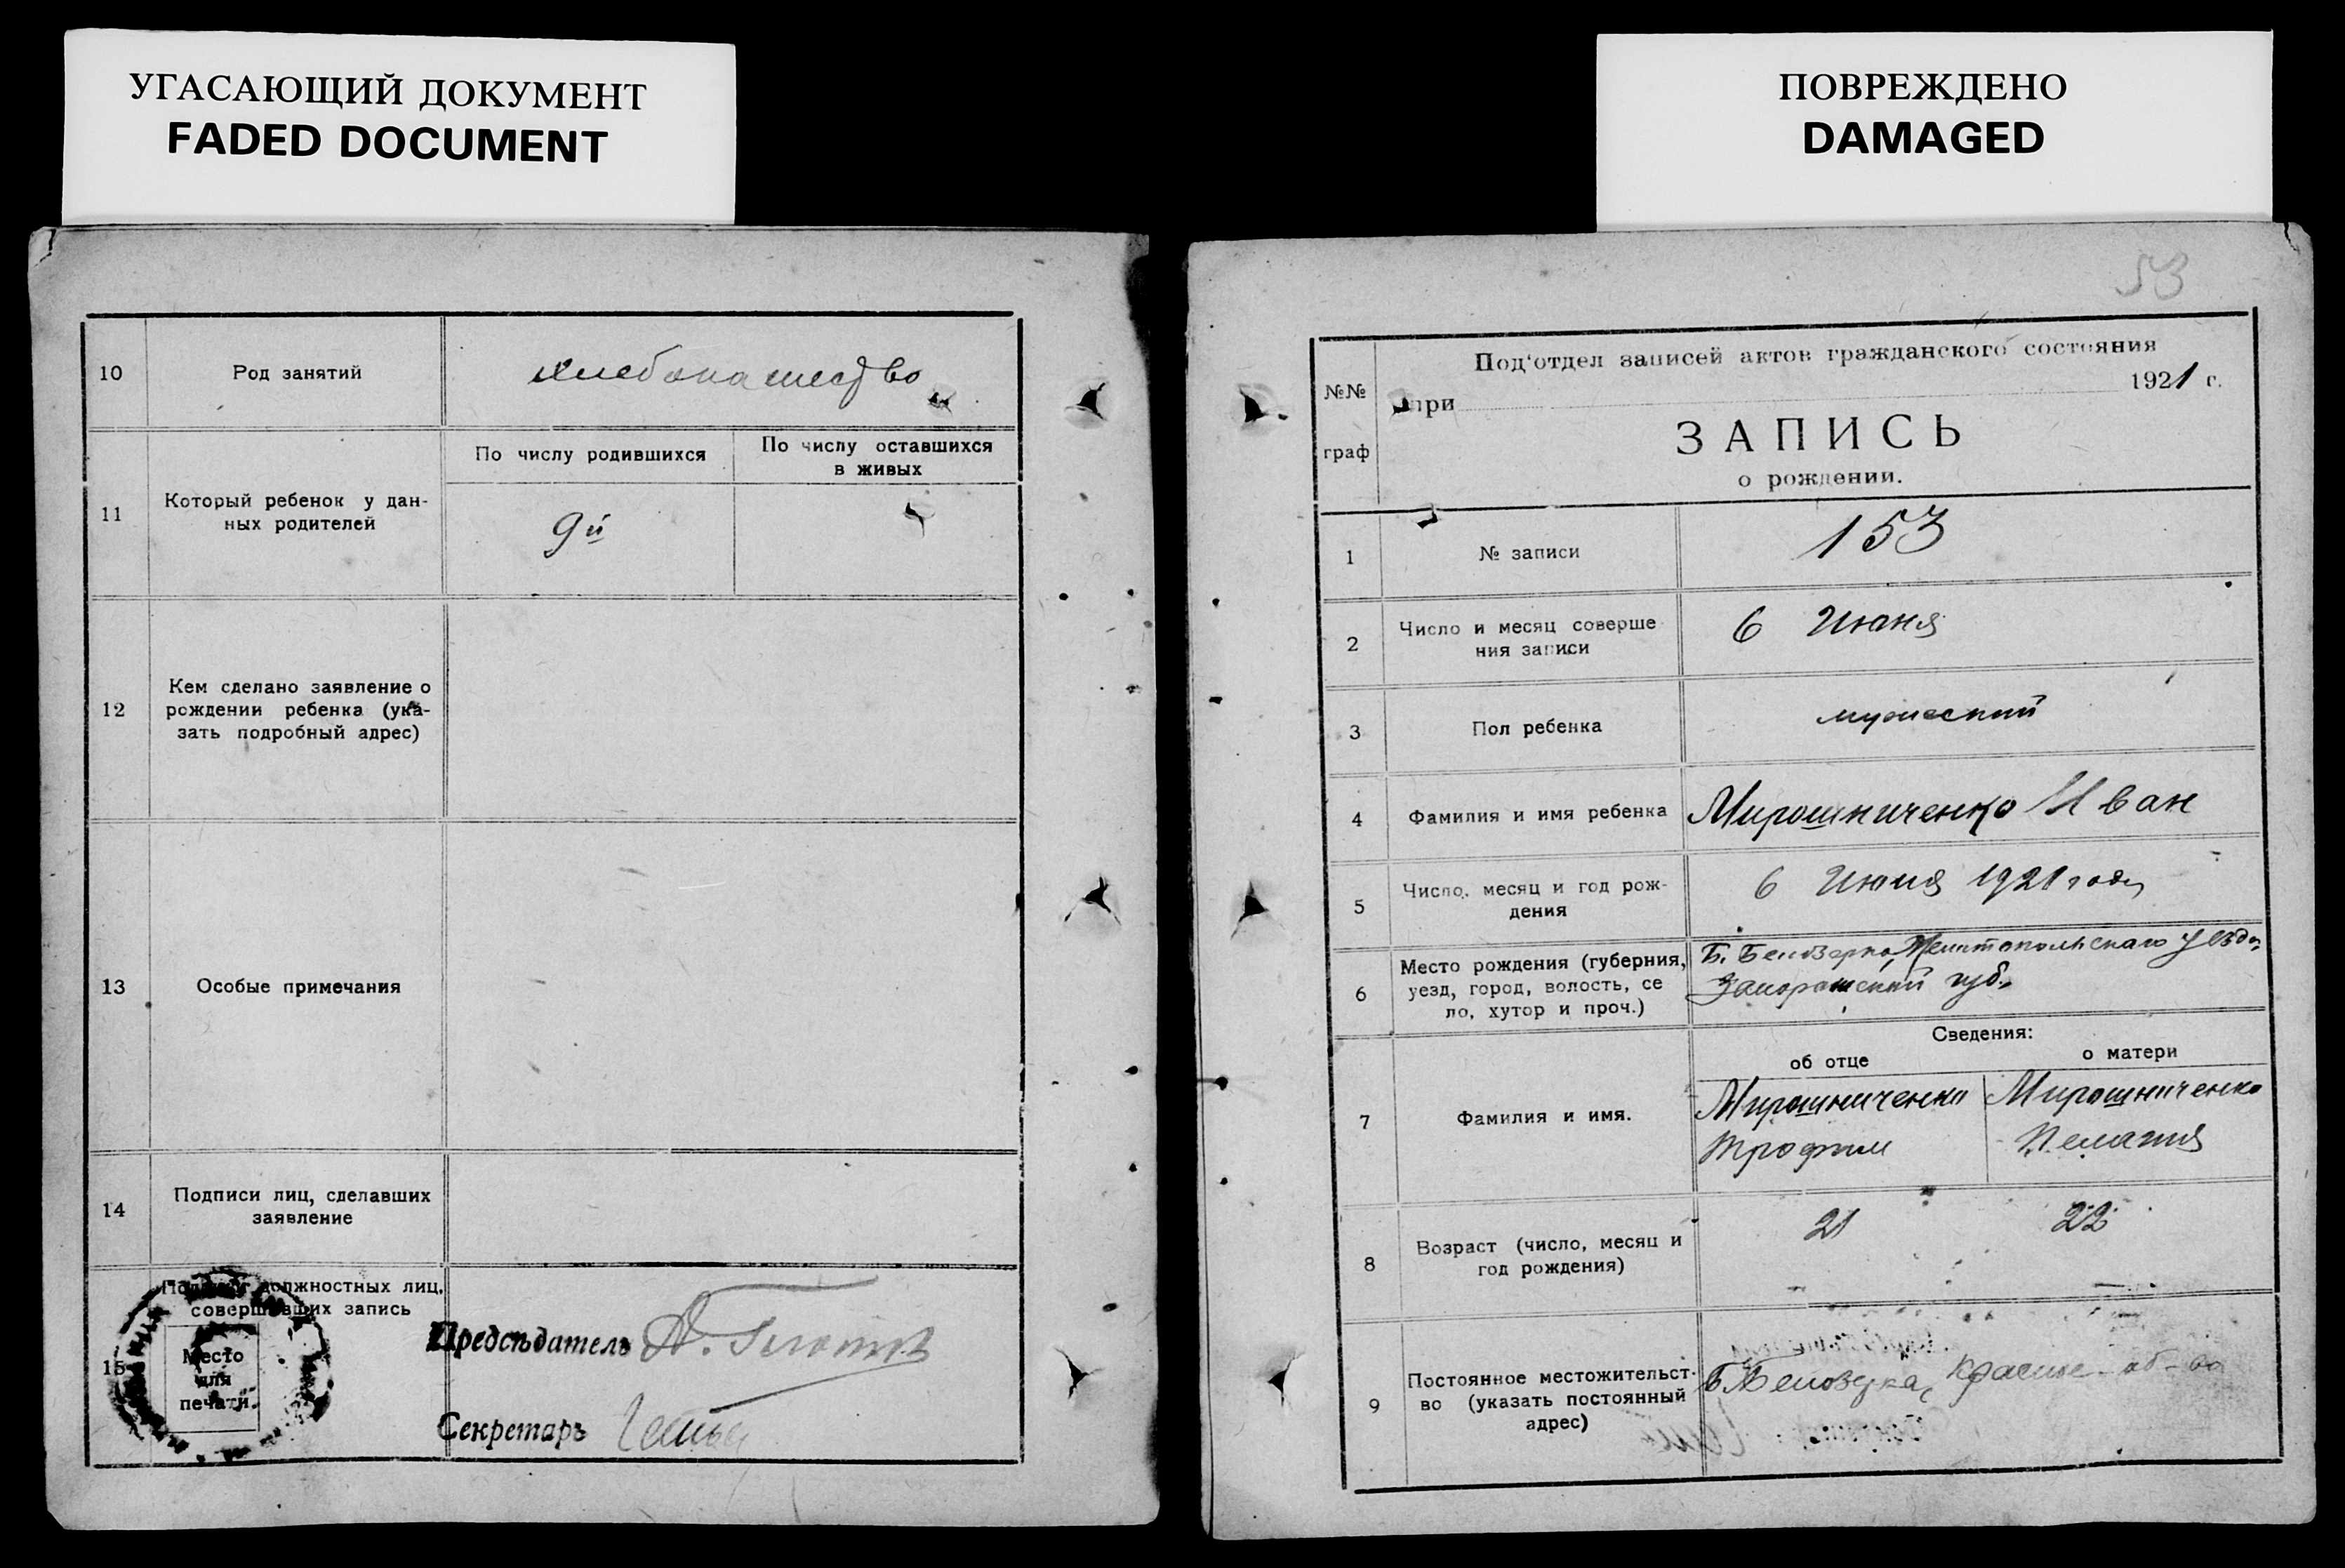 УГАСАЮЩИЙ ДОКУМЕНТ
FADED DOCUMENT
10
Род занятий
хлебопашество
11
Который ребенок у дан-
ных родителей
По числу родившихся
По числу оставшихся
в живых
9й
12
Кем сделано заявление о
рождении ребенка (ука-
зать подробный адрес)
13
Особые примечания
14
Подписи лиц, сделавших
заявление
15
Подписи должностных лиц,
совершивших запись
Место
для
печати.
Предсѣдатель
Секретарь
ПОВРЕЖДЕНО
DAMAGED
53
№№
граф
Под'отдел записей актов гражданского состояния
при 1921 г.
ЗАПИСЬ
о рождении.
1
№ записи
153
2
Число и месяц соверше
ния записи
6 Июня
3
Пол ребенка
мужеский
4
Фамилия и имя ребенка
Мирошниченко Иван
5
Число, месяц и год рож-
дения
6 Июня 1921 года
6
Место рождения (губерния,
уезд, город, волость, се
ло, хутор и проч.)
Б. Белозерка, Мелитопольскаго уезда,
Запорожской губ.
Сведения:
об отце
о матери
7
Фамилия и имя.
Мирошниченко
Трофим
Мирошниченко
Пелагия
8
Возраст (число, месяц и
год рождения)
21
22
9
Постоянное местожительст-
во (указать постоянный
адрес)
Б. Белозерка, об-во